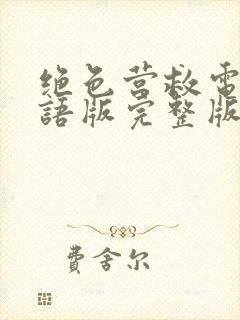 绝色营救電
語版完整版
費舍尔